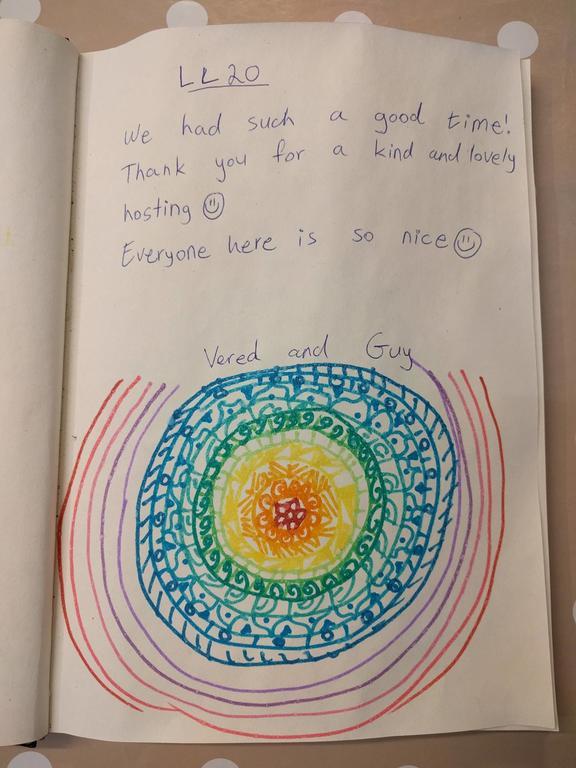 LL20
We had such a good time!
Thank you for a kind and lovely
hosting ☺
Everyone here is so nice ☺
Vered and Guy